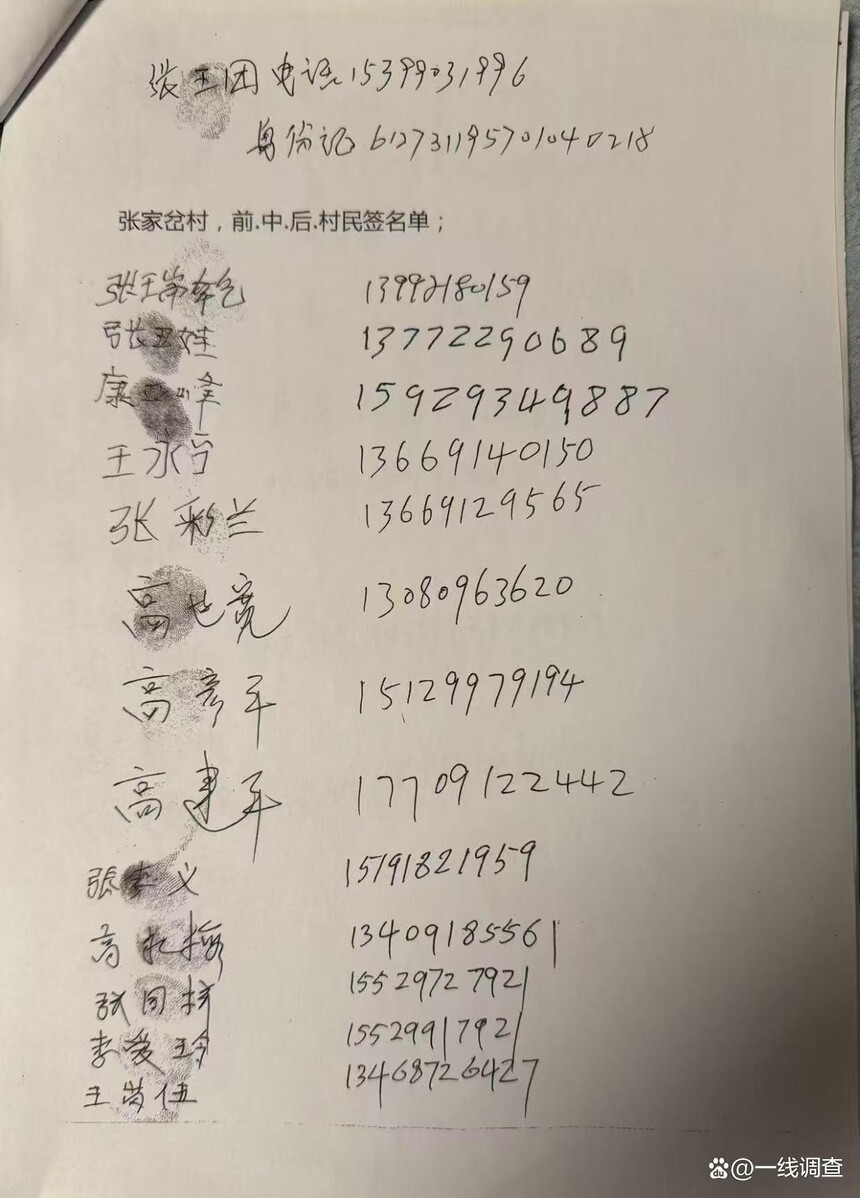 张王团 电话 15399031996
身份证 612731195701040218
张家岔村，前.中.后.村民签名单；
张 13992180159
张 13772290689
康 峰 15929349887
王永 13669140150
张彩兰 13669129565
高 宽 13080963620
高彦平 15129979194
高建平 17709122442
張 义 15191821959
高 梅 13409185561
张 15529727921
李爱玲 15529917921
王 伍 13468726427
@一线调查